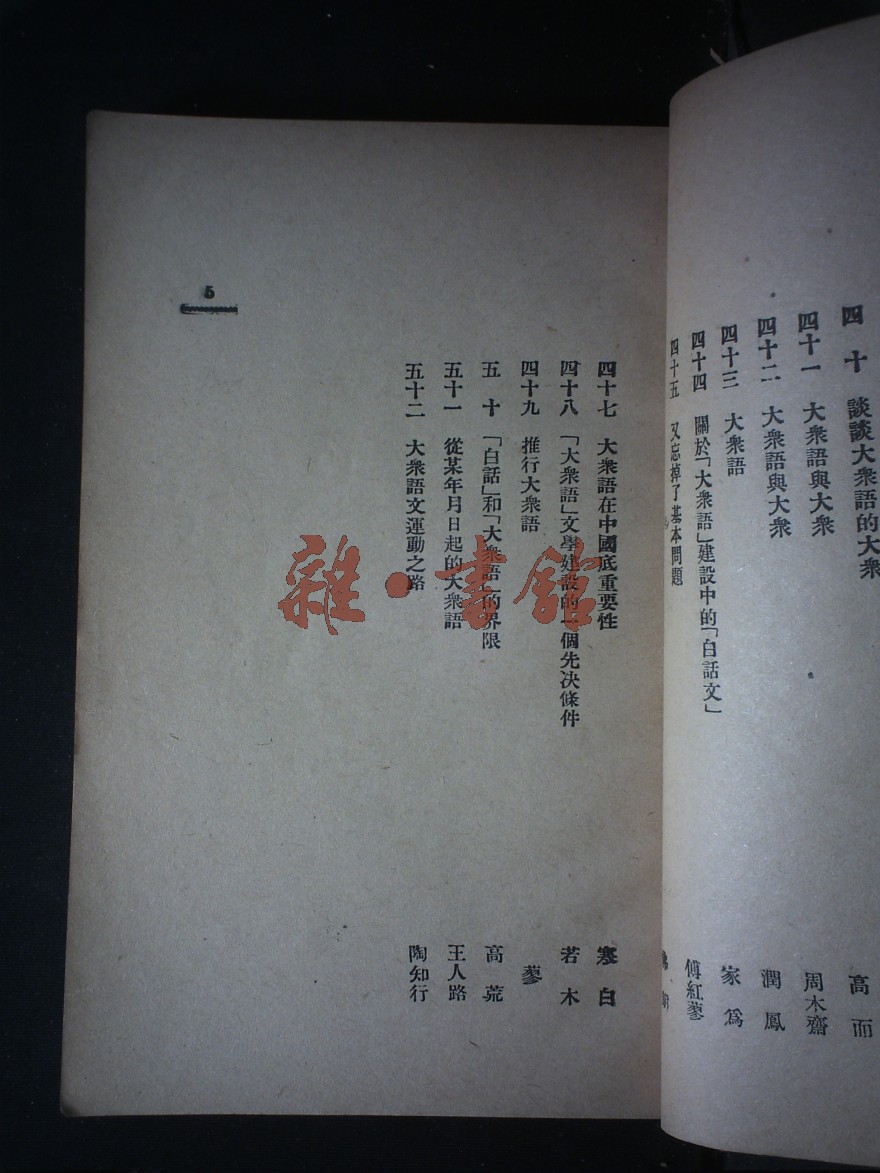 四十 談談大衆語的大衆 高而
四十一 大衆語與大衆 周木齋
四十二 大衆語與大衆 潤鳳
四十三 大衆語 家爲
四十四 關於「大衆語」建設中的「白話文」 傅紅蓼
四十五 又忘掉了基本問題
四十七 大衆語在中國底重要性 寒白
四十八 「大衆語」文學建設的一個先决條件 若木
四十九 推行大衆語 蓼
五十 「白話」和「大衆語」的界限 高荒
五十一 從某年月日起的大衆語 王人路
五十二 大衆語文運動之路 陶知行
5
雜·書館